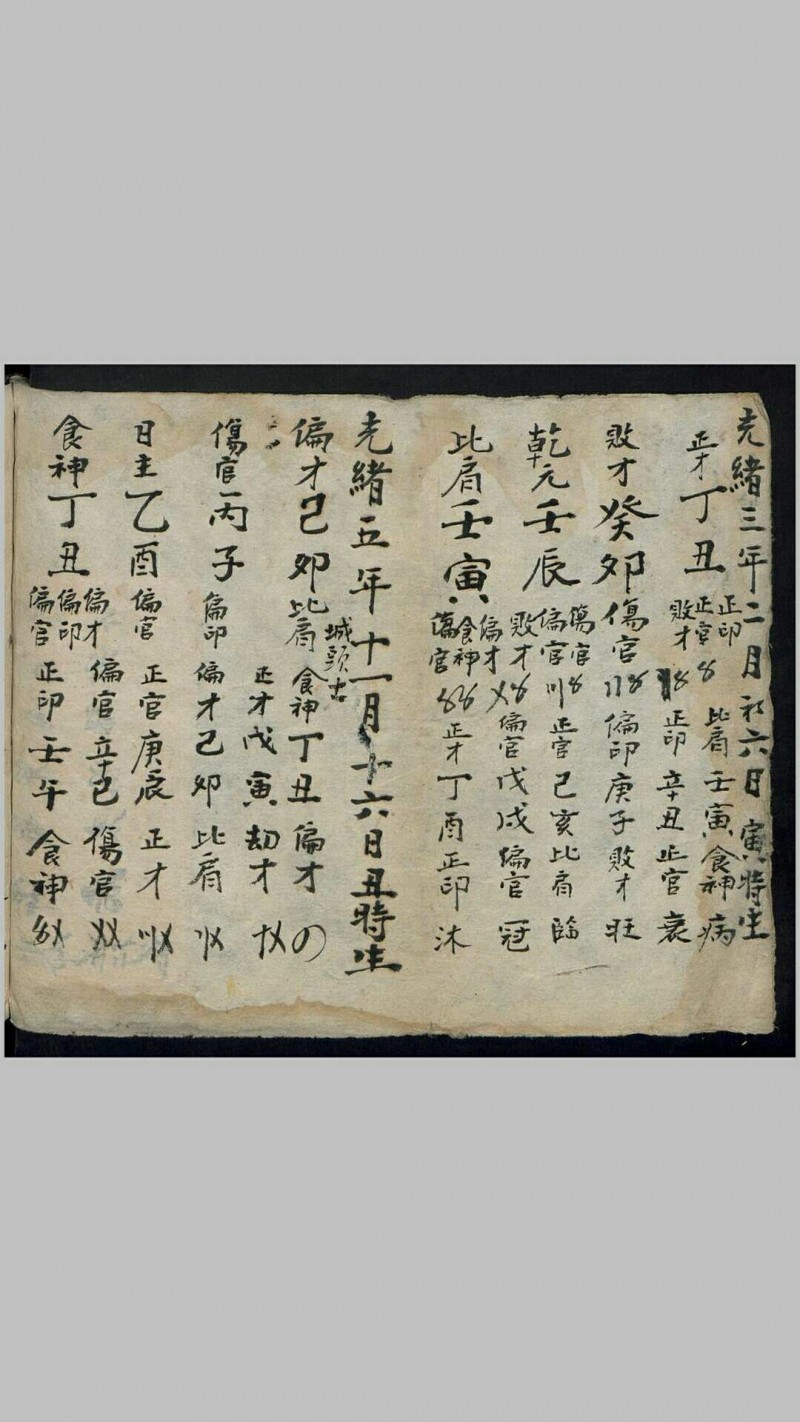 光緒三年二月初六日寅時生
正才丁丑
正印
正官
敗才
比肩壬寅食神病
正印辛丑正官衰
敗才癸卯傷官
偏印庚子敗才旺
乾元壬辰
傷官
偏官
敗才
正官己亥比肩臨
偏官戊戌偏官冠
比肩壬寅
偏才
食神
傷官
正才丁酉正印沐
光緒五年十一月十六日丑時生
城頭土
偏才己卯比肩
食神丁丑偏才
正才戊寅劫才
傷官丙子偏印
偏才己卯比肩
日主乙酉偏官
正官庚辰正才
食神丁丑
偏才
偏印
偏官
偏官辛巳傷官
正印壬午食神